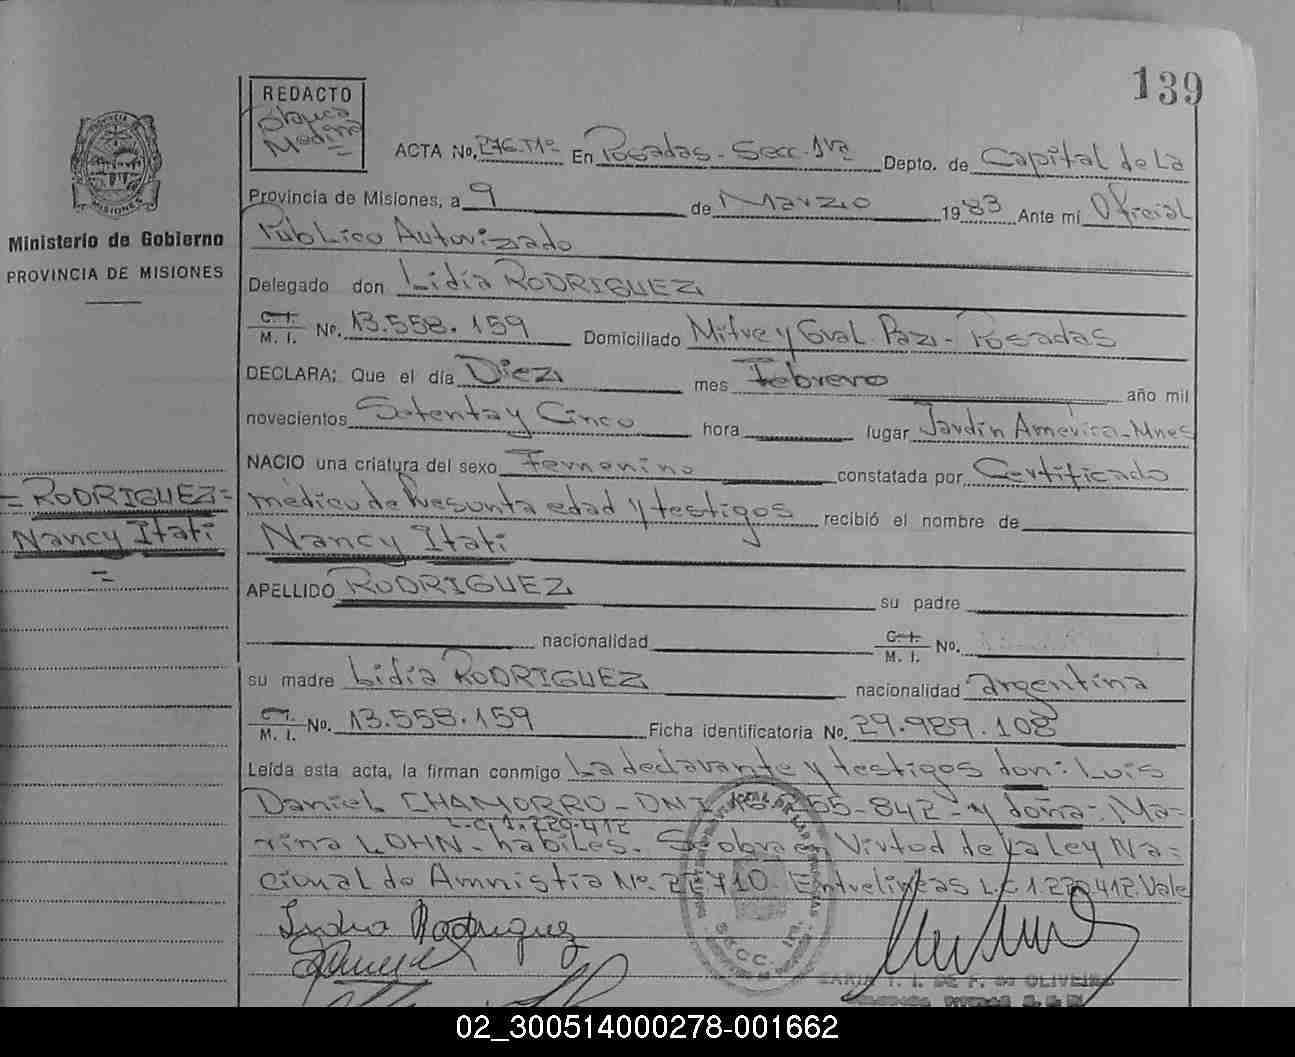 139
REDACTO
Blanca
Medina
ACTA No. 276.Tº1º En Posadas - Secc. 1ra Depto. de Capital de La
Provincia de Misiones, a 9 de Marzo 1983 Ante mi Oficial
Público Autorizado
Ministerio de Gobierno
PROVINCIA DE MISIONES
Delegado don Lidia RODRIGUEZ
C. I.
M. I. No. 13.558.159 Domiciliado Mitre y Gral. Paz - Posadas
DECLARA: Que el día Diez mes Febrero año mil
novecientos Setenta y Cinco hora lugar Jardín América - Mnes
NACIO una criatura del sexo Femenino constatada por Certificado
médico de Presunta edad y testigos recibió el nombre de
= RODRIGUEZ =
Nancy Itatí
=
Nancy Itatí
APELLIDO RODRIGUEZ su padre
nacionalidad C. I.
M. I. No.
su madre Lidia RODRIGUEZ nacionalidad argentina
C. I.
M. I. No. 13.558.159 Ficha identificatoria No. 29.989.108
Leída esta acta, la firman conmigo La declarante y testigos don: Luis
Daniel CHAMORRO - DNI 55-842 - y doña: Ma-
L.C. 1.229.412
rina LOHN - hábiles. Se obra en Virtud de la Ley Na-
cional de Amnistía Nº. 22710. Entrelíneas L.C. 1.229.412. Vale
Lidia Rodriguez
SECC. 1ra.
DE OLIVEIRA
02_300514000278-001662